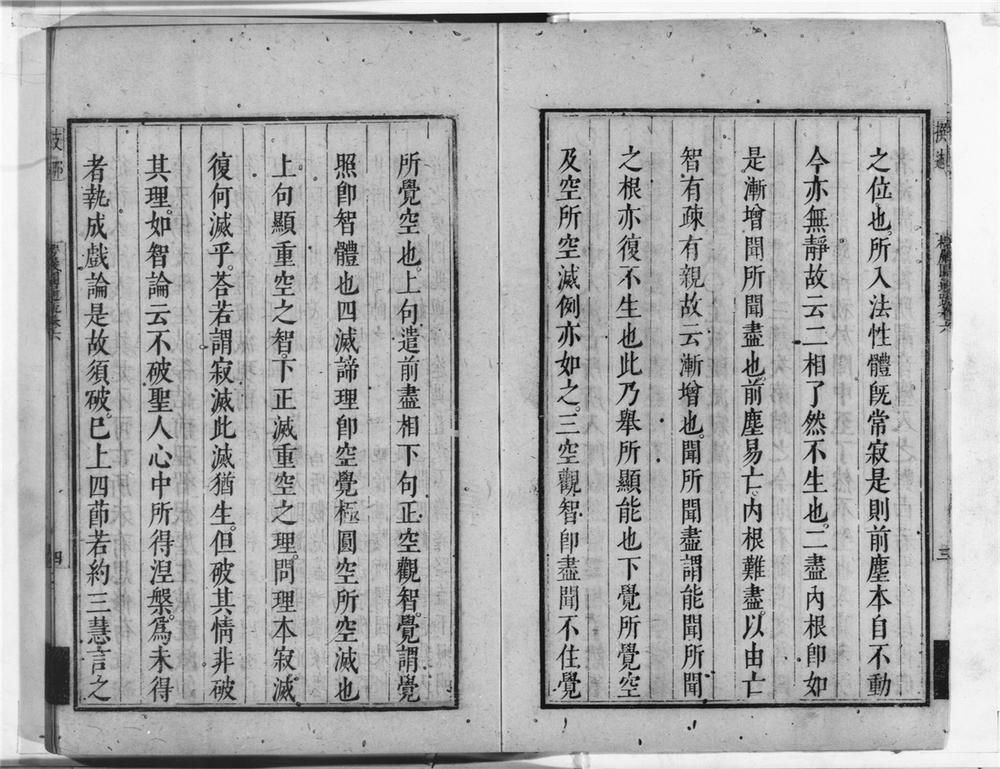 之位也。所入法性體旣常寂是則前塵本自不動
今亦無靜故云二相了然不生也。二盡內根卽如
是漸增聞所聞盡也。前塵易亡。內根難盡。以由亡
智有疎有親故云漸增也。聞所聞盡謂能聞所聞
之根亦復不生也此乃舉所顯能也下覺所覺空
及空所空滅例亦如之。三空觀智卽盡聞不住覺
三
所覺空也。上句遣前盡相下句正空觀智。覺謂覺
照卽智體也四滅諦理卽空覺極圓空所空滅也
上句顯重空之智。下正滅重空之理。問理本寂滅
復何滅乎。荅若謂寂滅此滅猶生。但破其情非破
其理。如智論云不破聖人心中所得涅槃。爲未得
者執成戲論是故須破。已上四莭若約三慧言之
四